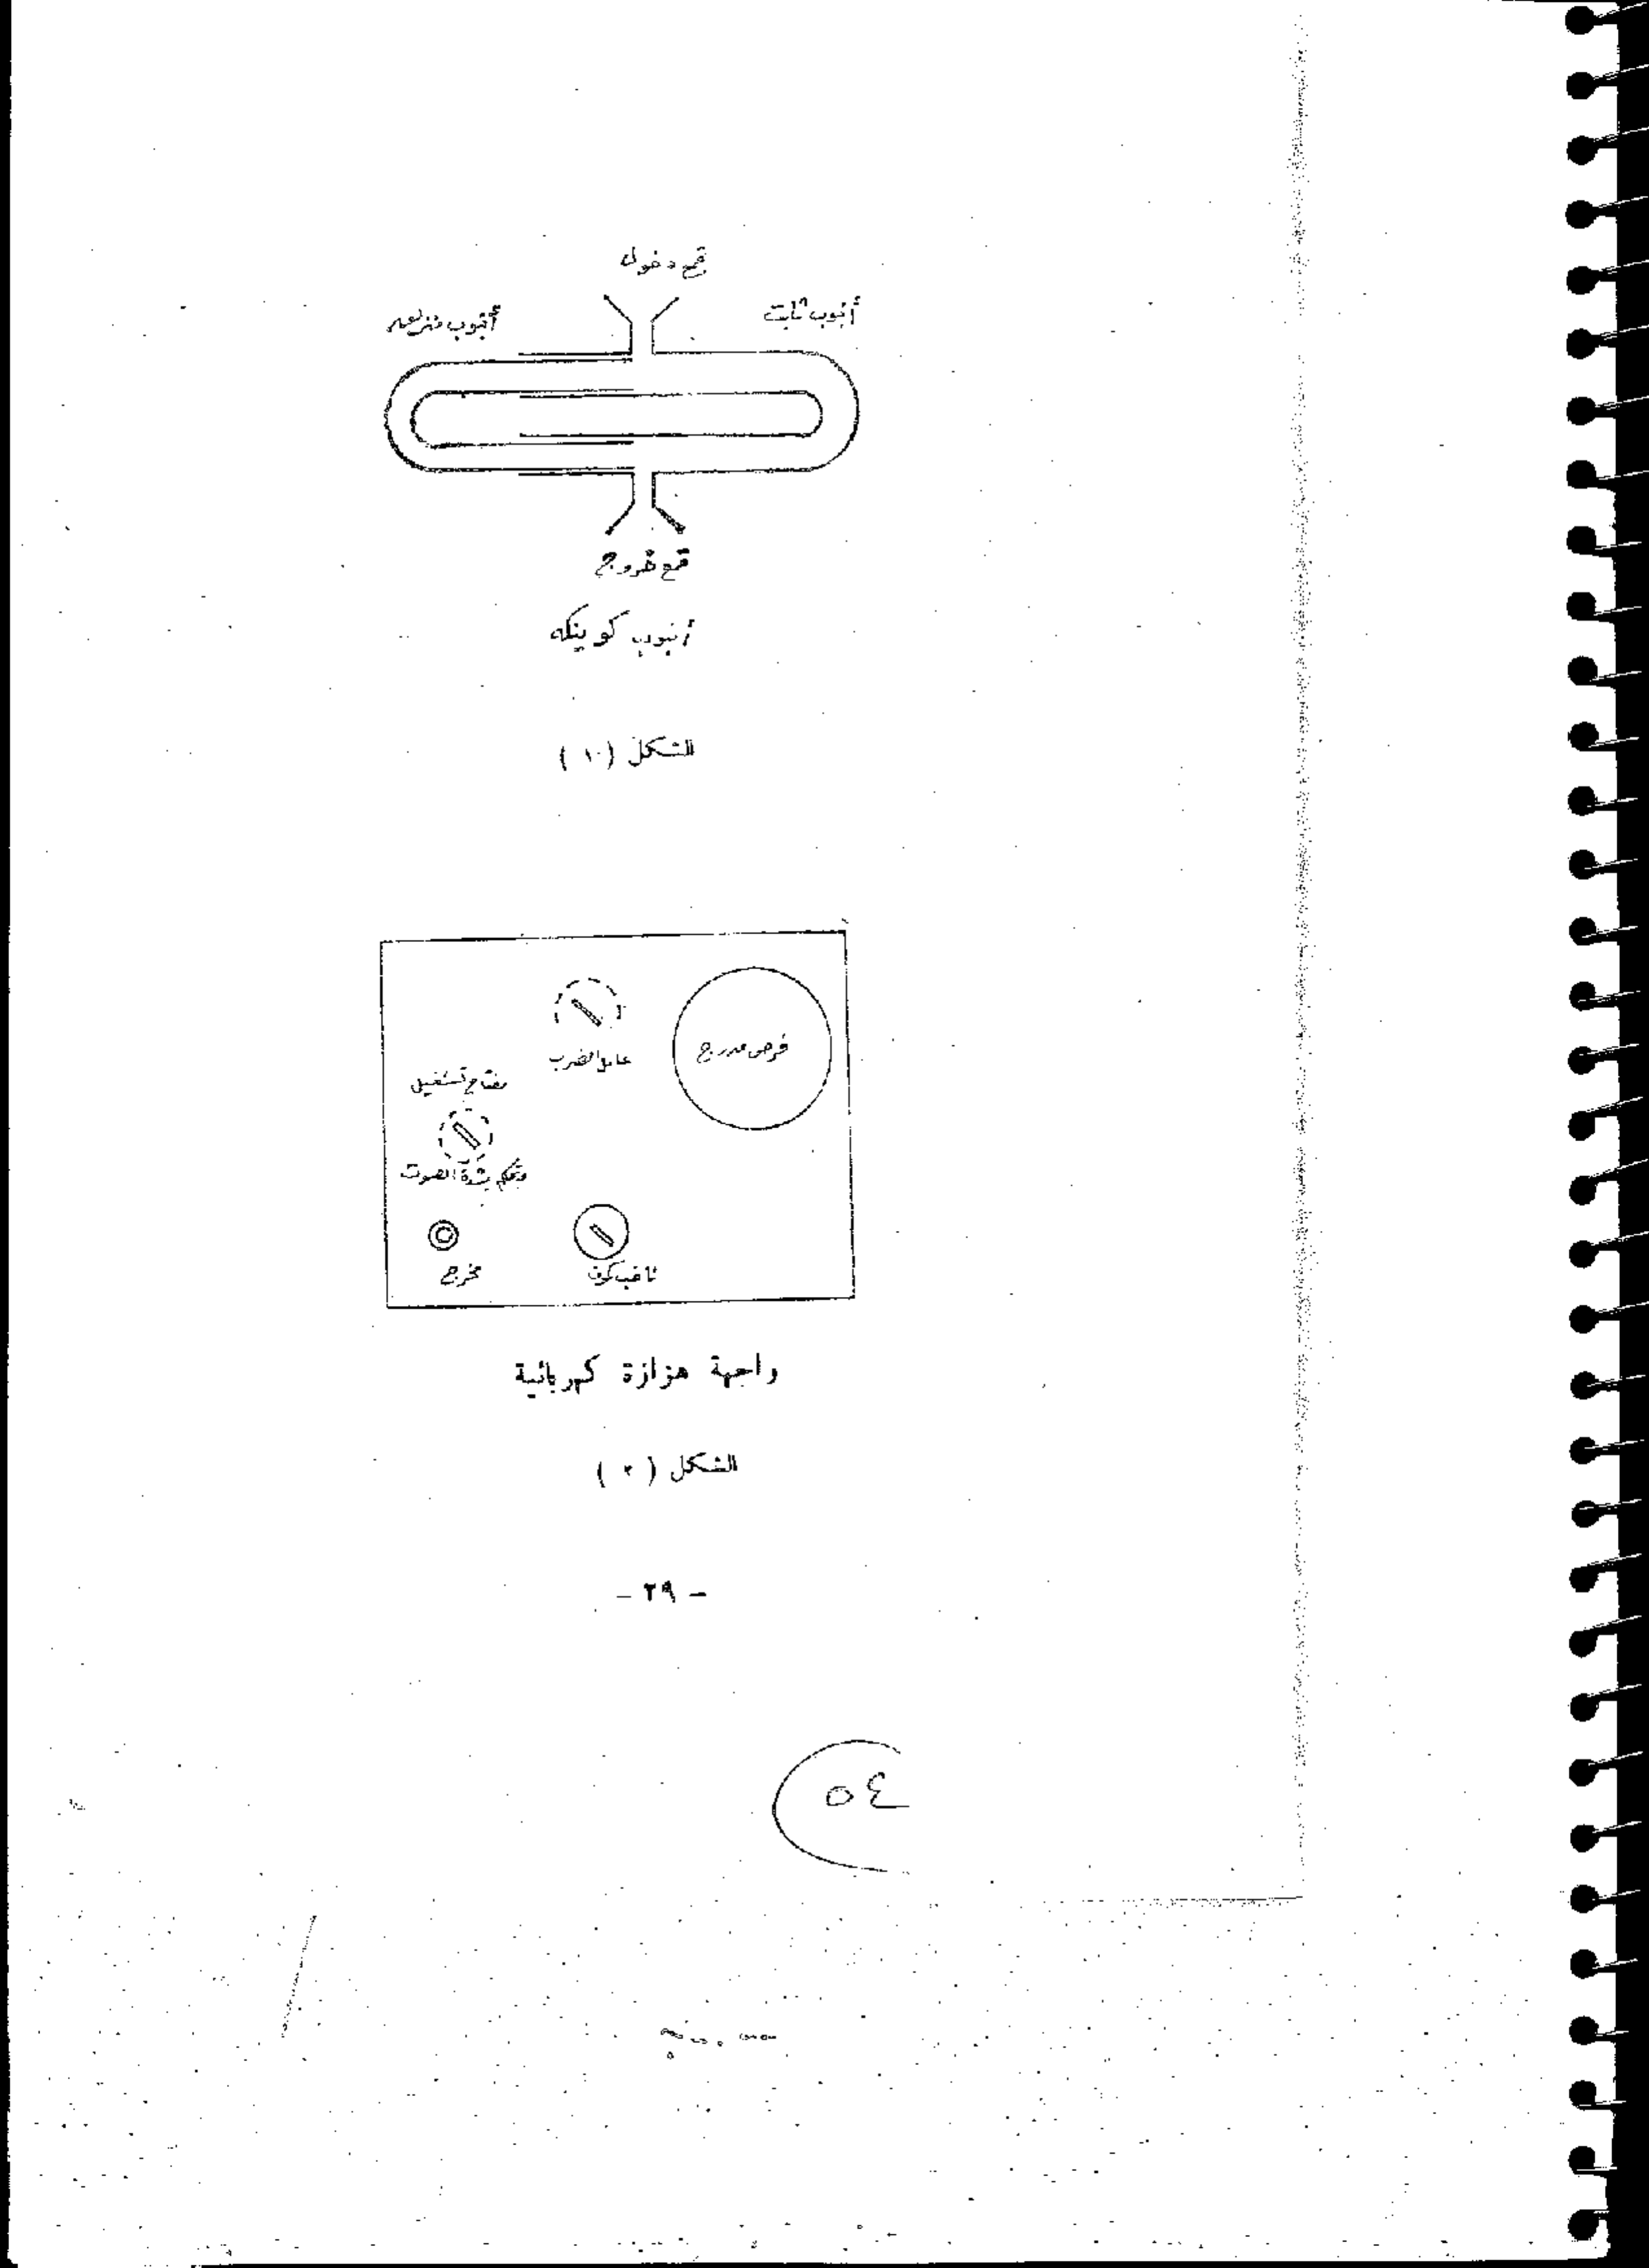 قمع دخول
أنبوب ثابت
أنبوب منزلق
قمع خروج
أنبوب كوينكه
الشكل (١٠)
قرص مدرج
عامل الضرب
مفتاح تشغيل
وتحكم بشدة الصوت
ناخب
مخرج
واجهة هزازة كهربائية
الشكل (٢)
– ٢٩ –
٥٤